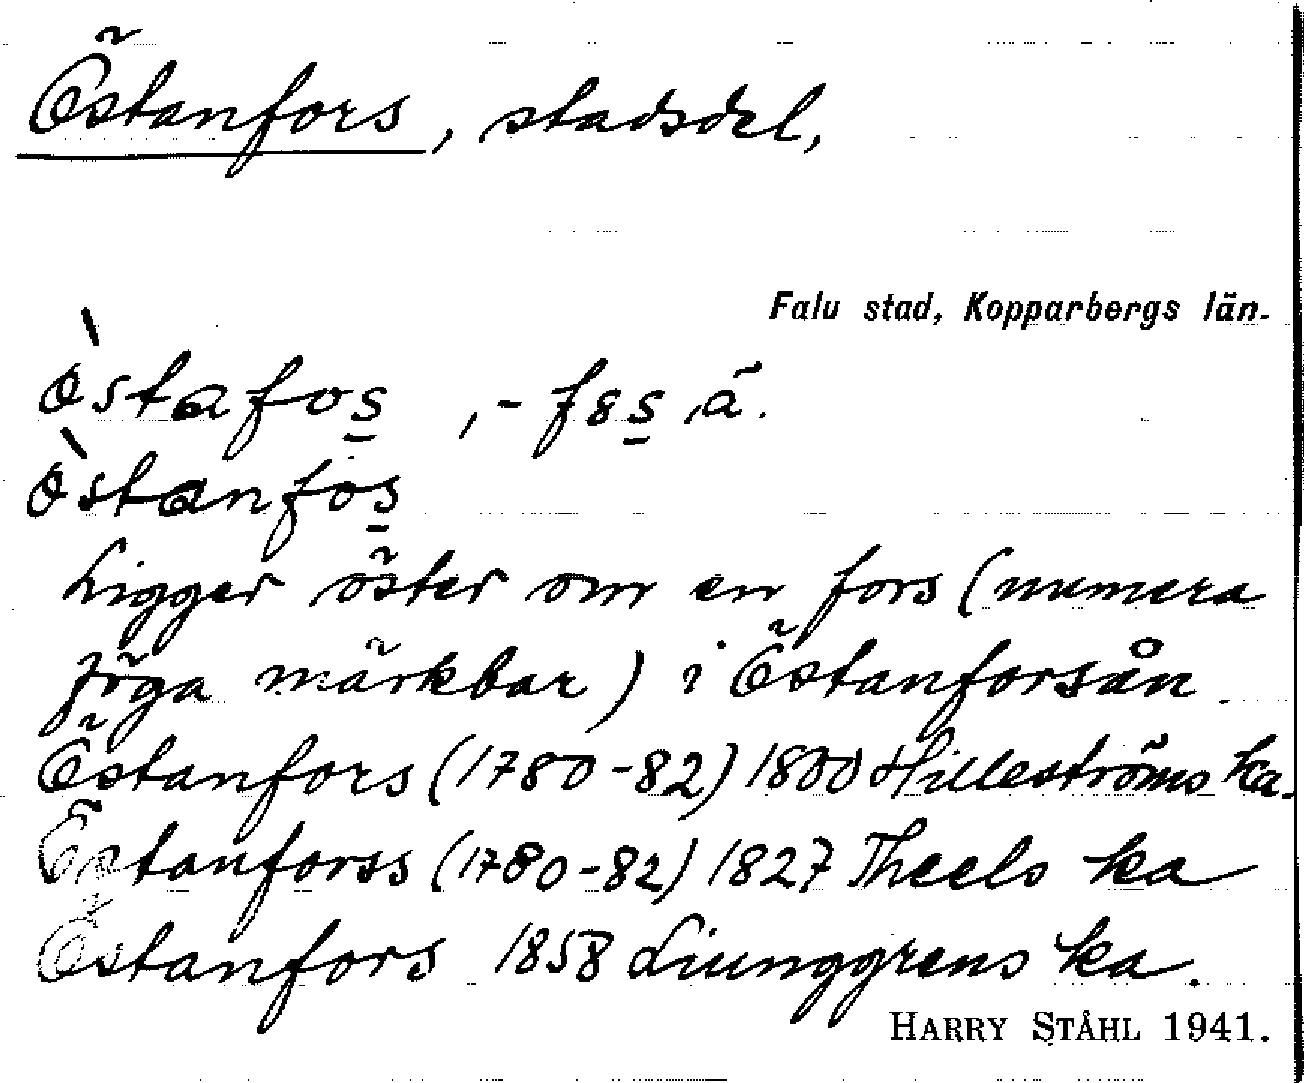 Östanfors, stadsdel,
Falu stad, Kopparbergs län.
östafos̲ ,-f8s̲, ä.
östanfos̲
Ligger öster om en fors (numera
föga märkbar) i Östanforsån.
Östanfors (1780-82) 1800 Hilleströms ka.
Östanforss (1780-82) 1827 Theels ka
Östanfors 1858 Liunggrens ka.
HARRY STÅHL 1941.